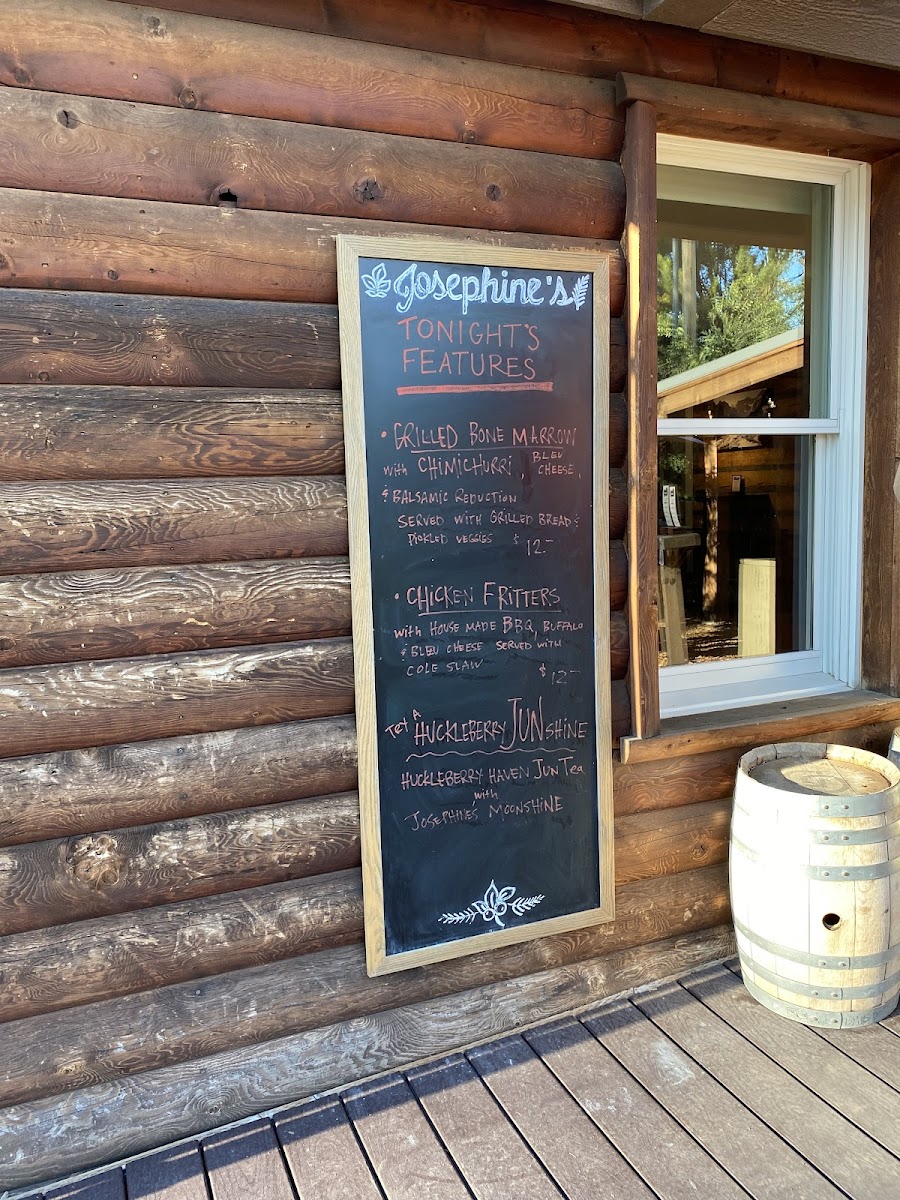 Josephine's
TONIGHT'S
FEATURES
• GRILLED BONE MARROW
with CHIMICHURRI, BLEU CHEESE,
& BALSAMIC REDUCTION
SERVED WITH GRILLED BREAD &
PICKLED VEGGIES $12.-
• CHICKEN FRITTERS
with HOUSE MADE BBQ, BUFFALO
& BLEU CHEESE SERVED WITH
COLE SLAW $12-
TRY A HUCKLEBERRY JUNSHINE
HUCKLEBERRY HAVEN JUN Tea
with
JOSEPHINES' MOONSHINE